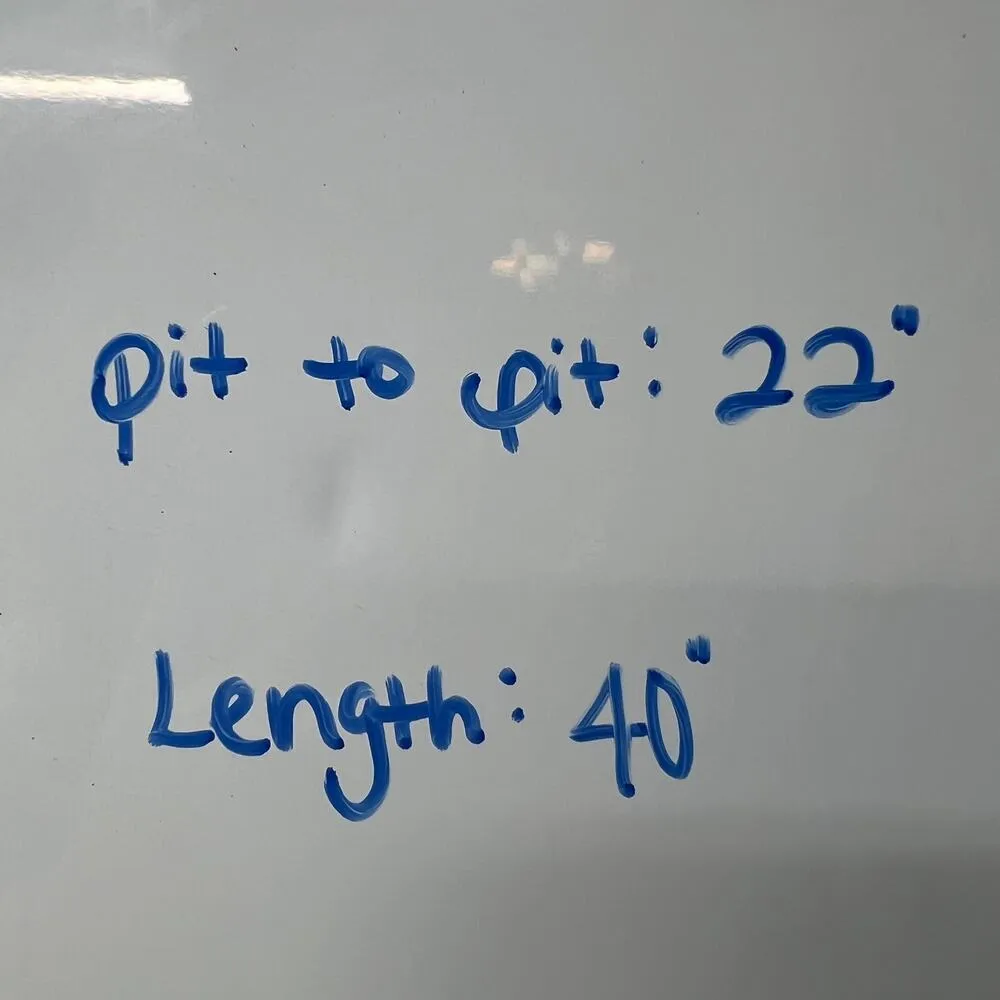 pit to pit: 22"
Length: 40"